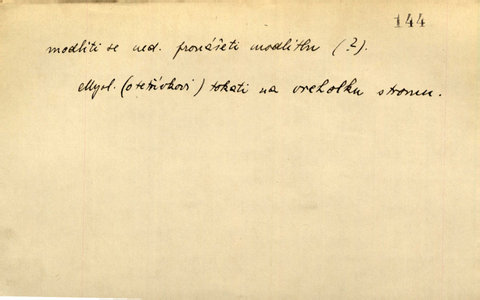 144
modliti se ned. pronášeti modlitbu (?).
Mysl. (o tetřívkovi) tokati na vrcholku stromu.